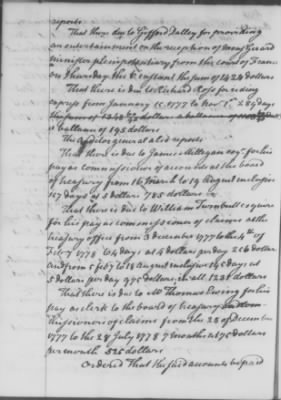 reports
That there due to Gifford Dalley for providing
an entertainment on the reception of Mons Gerard
minister plenipotentiary from the court of France
on Thursday the 6 instant the sum of 1424 dollars
That there is due to Richard Ross for riding
express from January 1777 to Nov 289 days
dollars a ballance of
a ballance of 195 dollars
The auditor general also reports
That there is due to James Milligan esqr for his
pay as commissioner of accounts at the board
of treasury from 16 March to 19 August inclusive
157 days at 5 dollars 785 dollars
That there is due to William Turnbull esquire
for his pay as commissioner of claims at the
treasury office from 3 december 1777 to the 4th of
Feby 1778 64 days at 4 dollars per day 256 dollars
and from 5 feby to 18 August inclusive 195 days at
5 dollars per day 975 dollars in all 1231 dollars
That there is due to Mr Thomas Ewing for his
pay as clerk to the board of treasury
missioners of claims from the 28 of December
1777 to the 28 July 1778 7 months at 75 dollars
per month 525 dollars
Ordered That the said accounts be paid